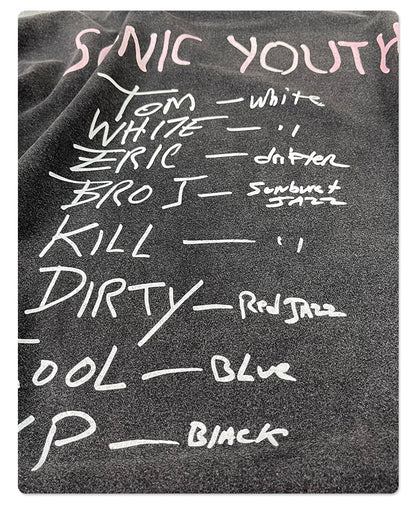 SONIC YOUTH
TOM — White
WHITE — "
ERIC — drifter
BRO J — Sunburst
JAZZ
KILL — "
DIRTY — Red JAZZ
OOL — BLue
P — BlAck